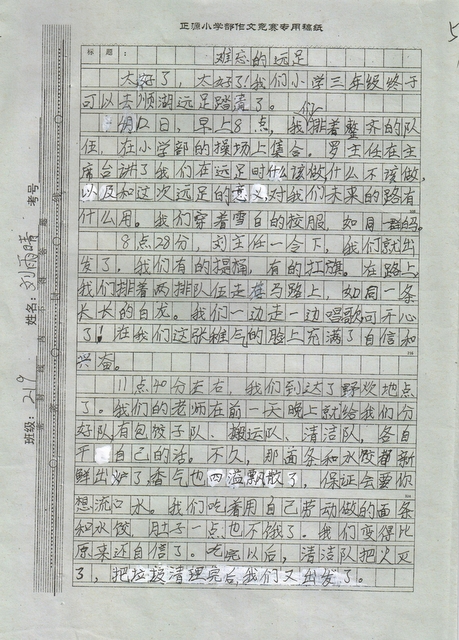 正源小学部作文竞赛专用稿纸
标题：难忘的远足
太好了，太好了！我们小学三年级终于
可以去顺湖远足踏青了。
月12日，早上8点，我们排着整齐的队
伍，在小学部的操场上集合。罗主任在主
席台讲了我们在远足时什么该做什么不该做，
以及和这次远足的意义，对我们未来的路有
什么用。我们穿着雪白的校服，如同一群
8点28分，刘主任一合下，我们就出
发了，我们有的提桶，有的扛旗。在路上，
我们排着两排队伍走在马路上，如同一条
长长的白龙。我们一边走一边唱歌可开心
了！在我们这张稚气的脸上充满了自信和
兴奋。
11点40分左右，我们到达了野炊地点
了。我们的老师在前一天晚上就给我们分
好队有包饺子队、搬运队、清洁队，各自
干自己的活。不久，那面条和水饺都新
鲜出炉了香气也四溢飘散了，保证会要你
想流口水。我们吃着用自己劳动做的面条
和水饺，肚子一点也不饿了。我们变得比
原来还自信了。吃完以后，清洁队把火灭
了，把垃圾清理完后，我们又出发了。
班级：219
姓名：刘雨晴
考号